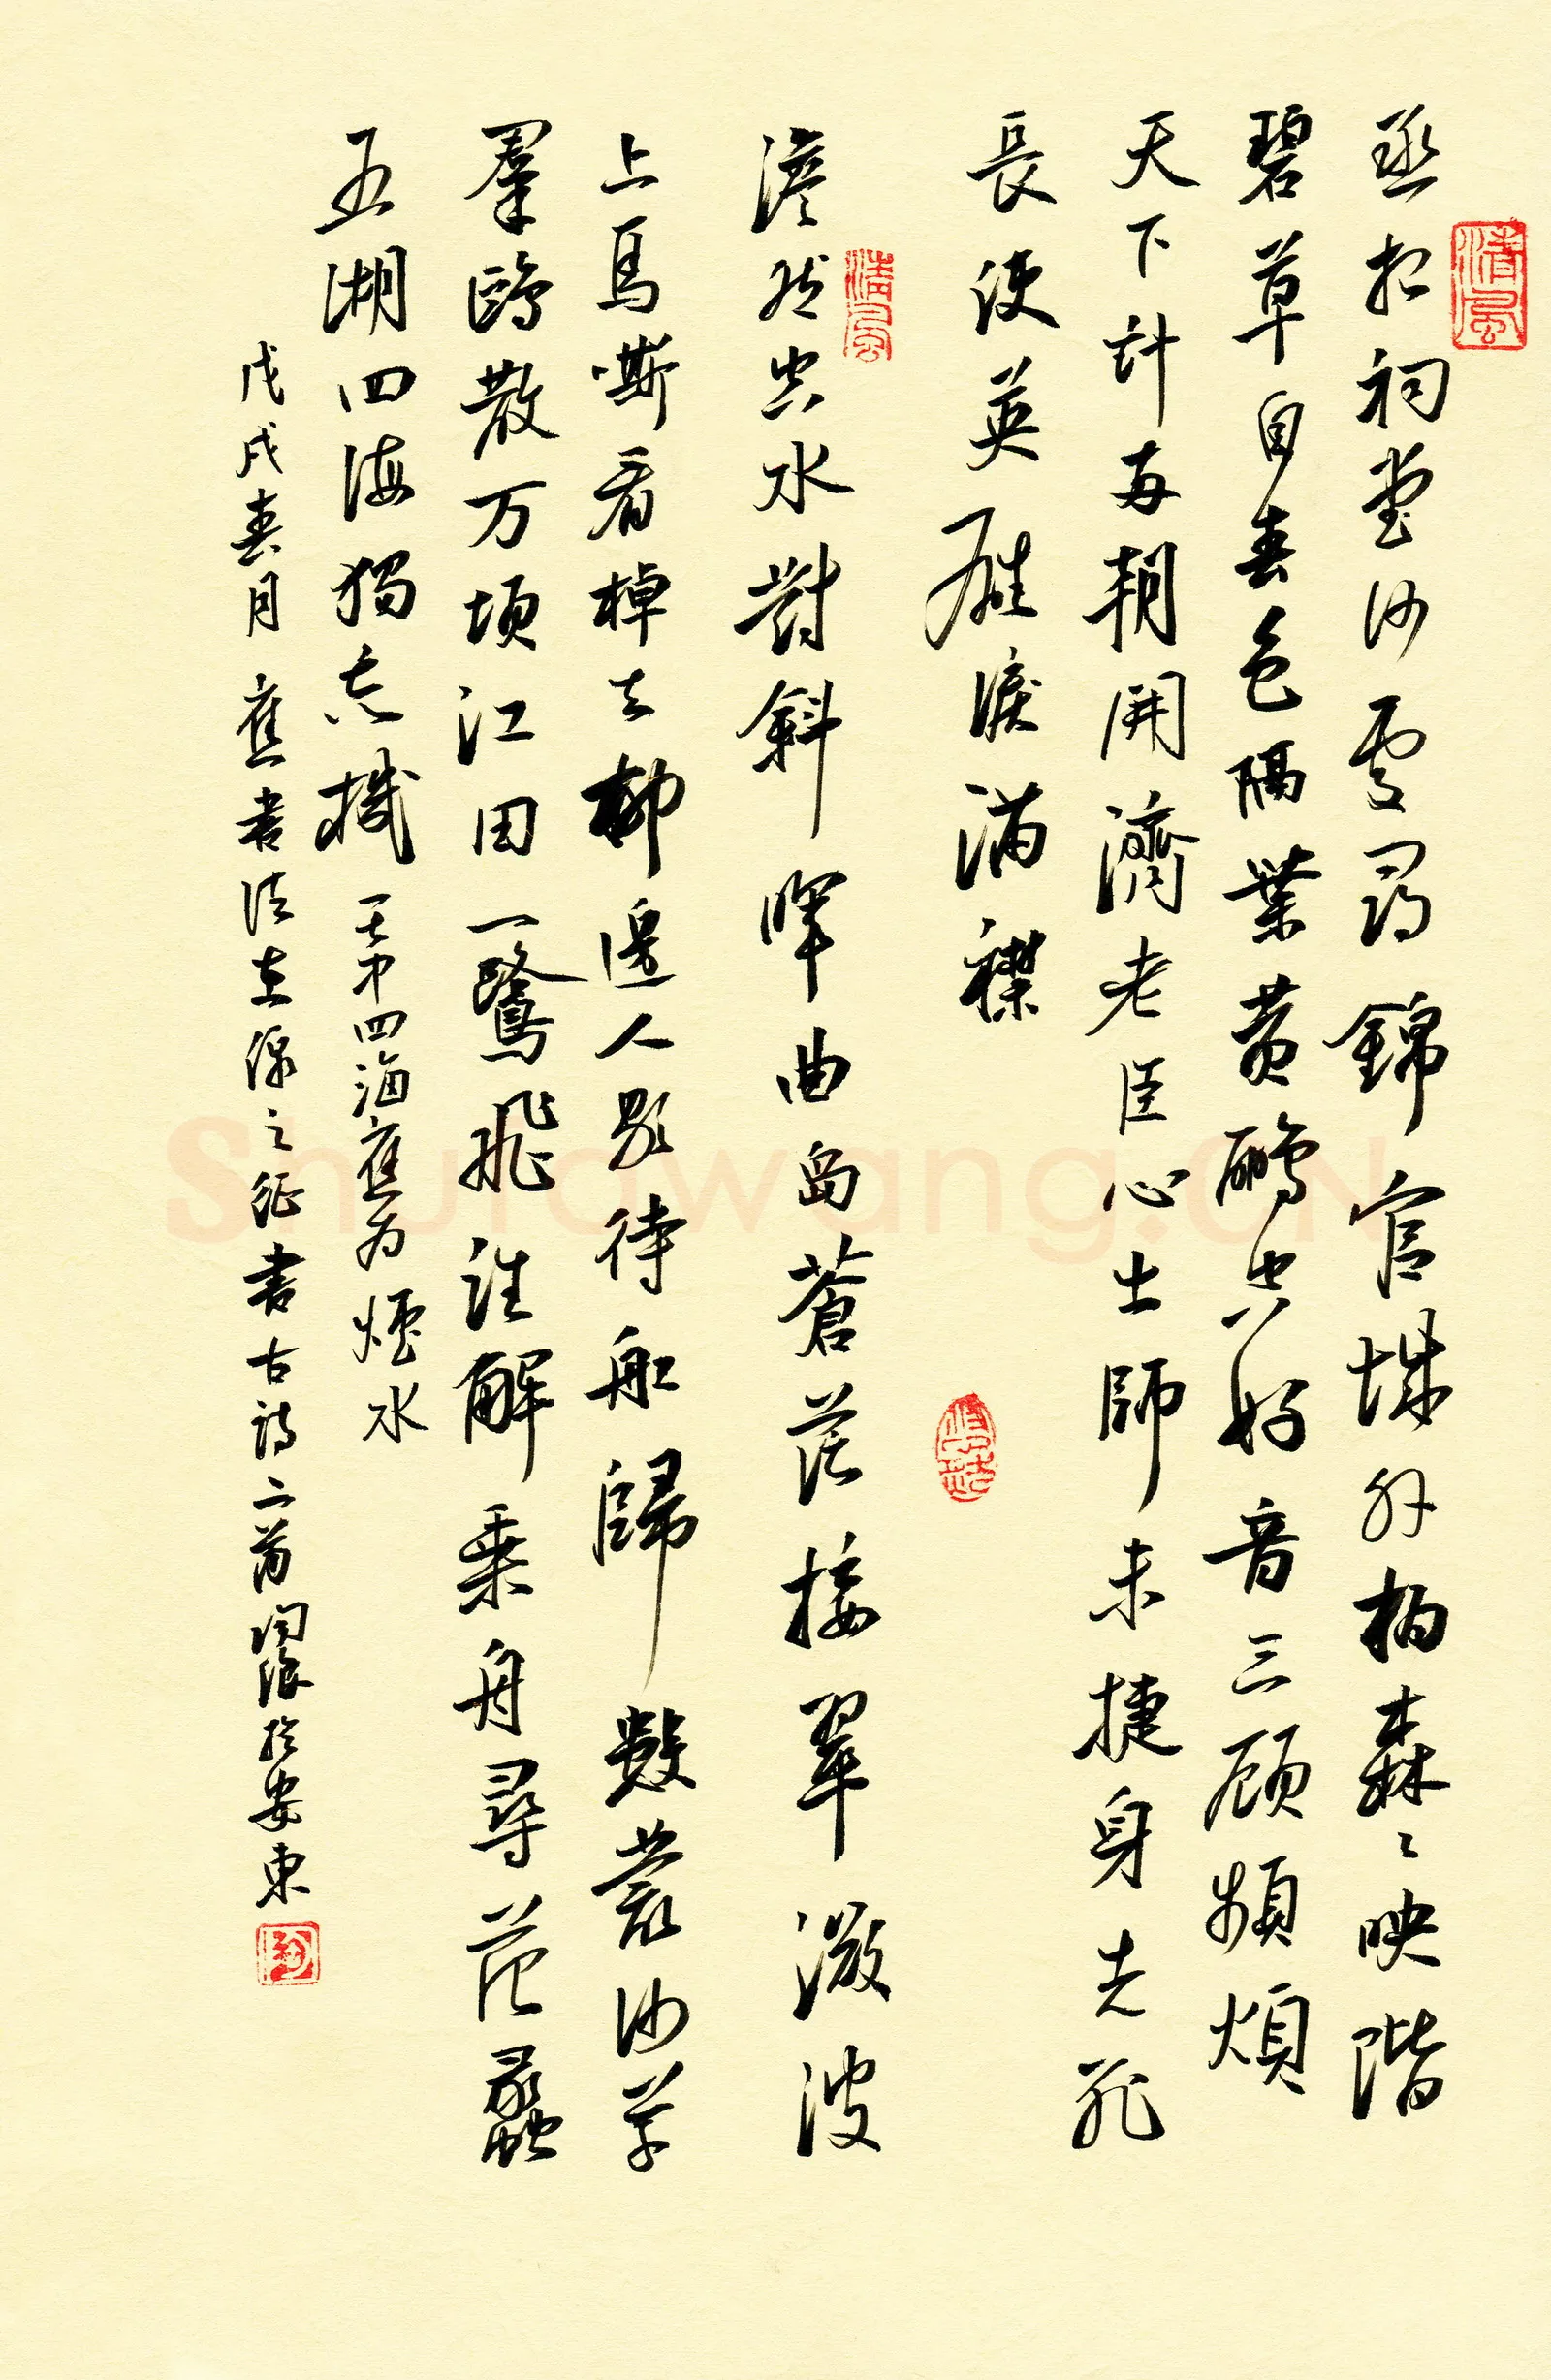 清風
丞相祠堂何處尋錦官城外柏森〻映階
碧草自春色隔葉黄鸝空好音三顾頻煩
天下計两朝開濟老臣心出師未捷身先死
長使英雄淚满襟
清風
澹然空水對斜暉曲岛蒼茫接翠微波
上馬嘶看棹去柳邊人歇待船歸數叢沙草
羣鷗散万頃江田一鷺飛誰解乘舟尋范蠡
五湖四海獨忘機 其第四海應为煙水
戊戌春月應書法在線之征書古詩二首於安東
Shufawang.CN